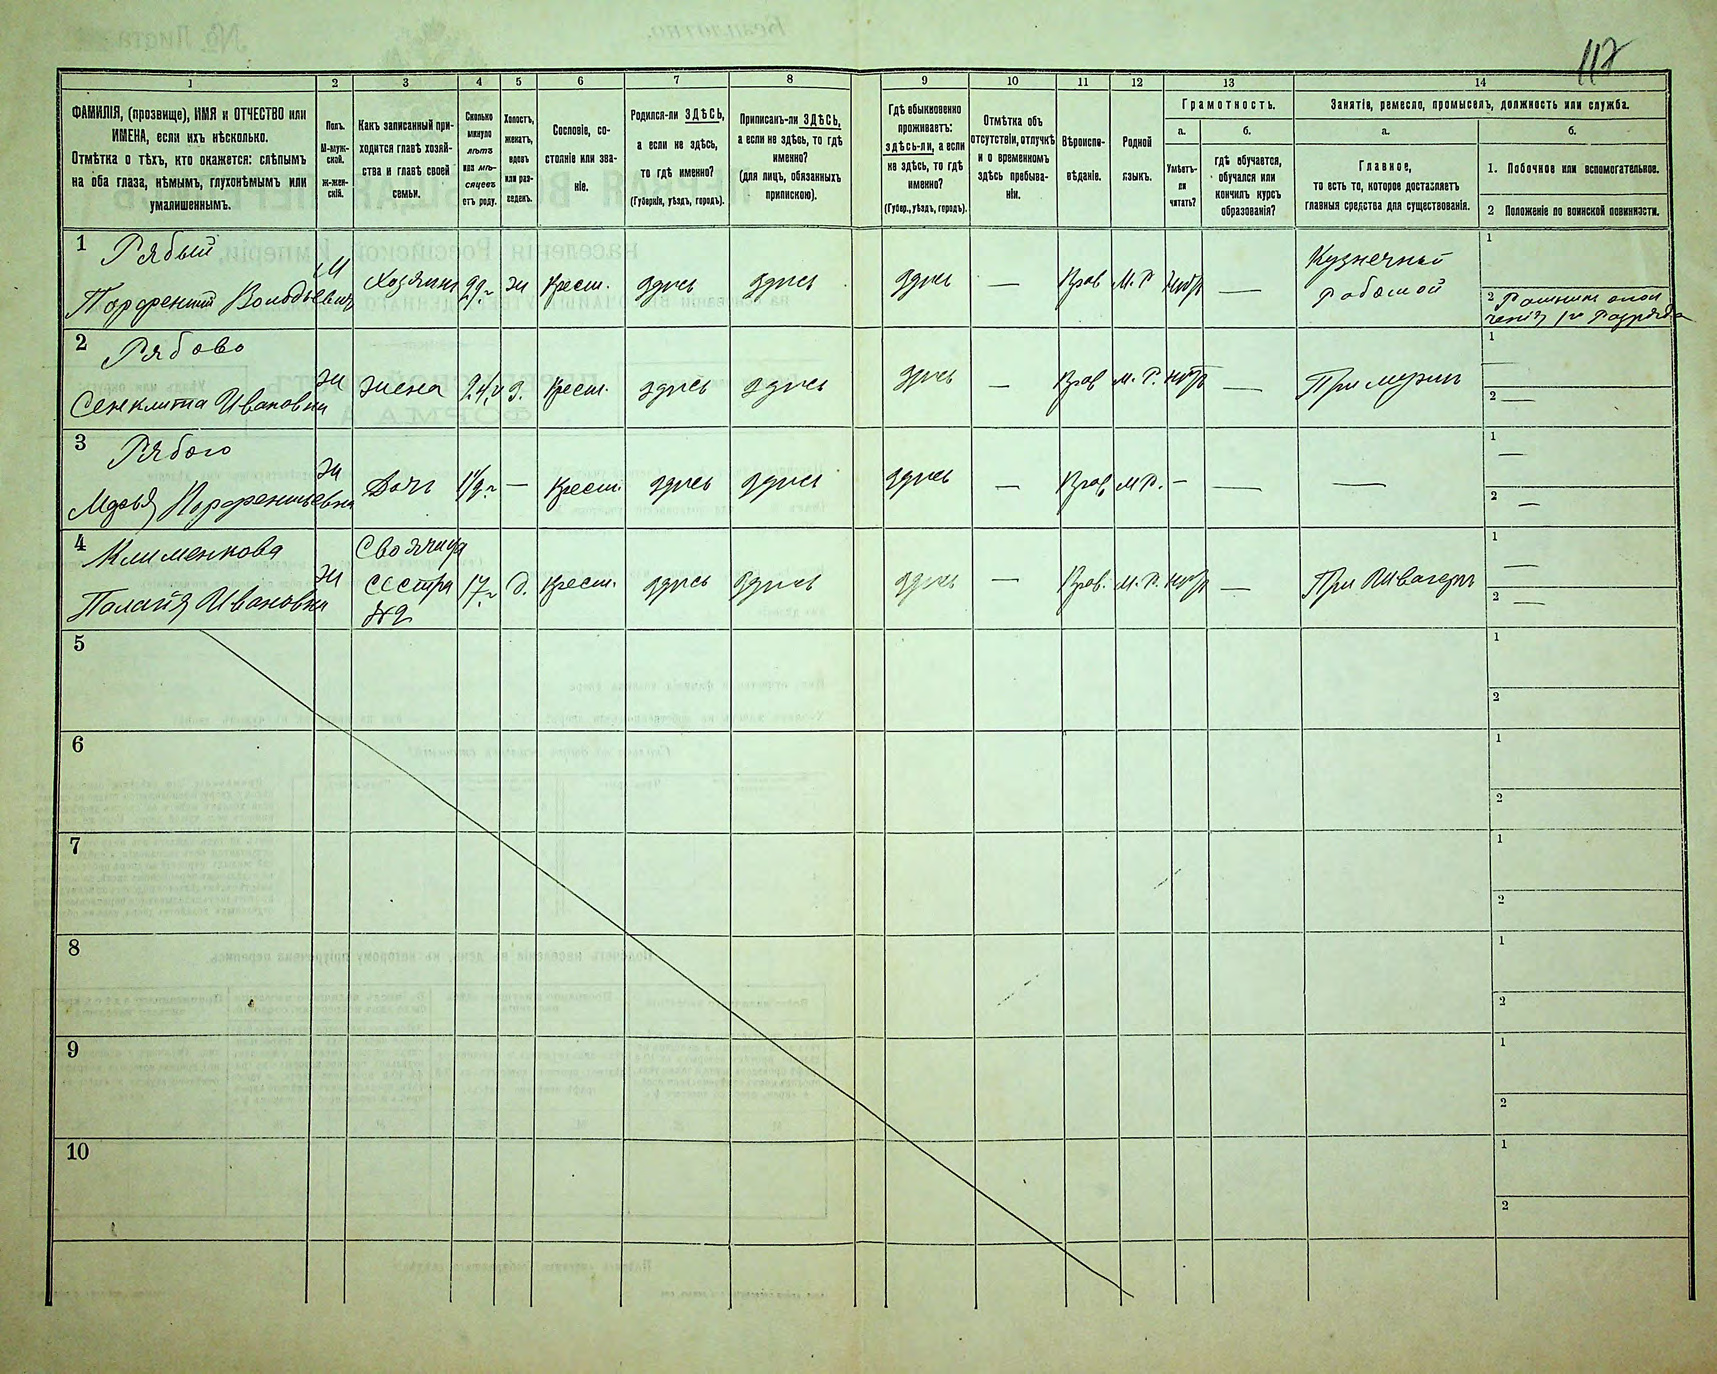 117
1 2 3 4 5 6 7 8 9 10 11 12 13 14
ФАМИЛІЯ, (прозвище), ИМЯ и ОТЧЕСТВО или
ИМЕНА, если ихъ нѣсколько.
Отмѣтка о тѣхъ, кто окажется: слѣпымъ
на оба глаза, нѣмымъ, глухонѣмымъ или
умалишеннымъ.
Полъ.
М-муж-
ской.
Ж-жен-
скій.
Какъ записанный при-
ходится главѣ хозяй-
ства и главѣ своей
семьи.
Сколько
минуло
лѣтъ
или мѣ-
сяцевъ
отъ роду.
Холостъ,
женатъ,
вдовъ
или раз-
веденъ.
Сословіе, со-
стояніе или зва-
ніе.
Родился-ли ЗДѢСЬ,
а если не здѣсь,
то гдѣ именно?
(Губернія, уѣздъ, городъ).
Приписанъ-ли ЗДѢСЬ,
а если не здѣсь, то гдѣ
именно?
(для лицъ, обязанныхъ
припискою).
Гдѣ обыкновенно
проживаетъ:
здѣсь-ли, а если
не здѣсь, то гдѣ
именно?
(Губер., уѣздъ, городъ).
Отмѣтка объ
отсутствіи, отлучкѣ
и о временномъ
здѣсь пребыва-
ніи.
Вѣроиспо-
вѣданіе.
Родной
языкъ.
Грамотность.
а.
Умѣетъ-
ли
читать?
б.
гдѣ обучается,
обучался или
кончилъ курсъ
образованія?
Занятія, ремесло, промыселъ, должность или служба.
а.
Главное,
то есть то, которое доставляетъ
главныя средства для существованія.
б.
1. Побочное или вспомогательное.
2 Положеніе по воинской повинности.
1 Рябый
Порфентій Володьевич
М Хозяинъ 29 г. ж Крест. здѣсь здѣсь здѣсь — Прав М. Р —
Кузнечный
работой
1
2 Ратникъ опол
ченія 1го Разряда
2 Рябово
Сенклита Ивановна
ж жена 24 г з. Крест. здѣсь здѣсь здѣсь — Прав М. Р. — При мужъ
1 —
2 —
3 Рябого
Порфентьевна
ж Дочь — Крест. здѣсь здѣсь здѣсь — Прав М Р. — — —
1 —
2 —
4 Клименкова
Палагія Ивановна
ж Своячица
сестра
№2
17 г. д. Крест. здѣсь здѣсь здѣсь — Прав. М. Р. — При
1 —
2 —
5 1
2
6 1
2
7 1
2
8 1
2
9 1
2
10 1
2